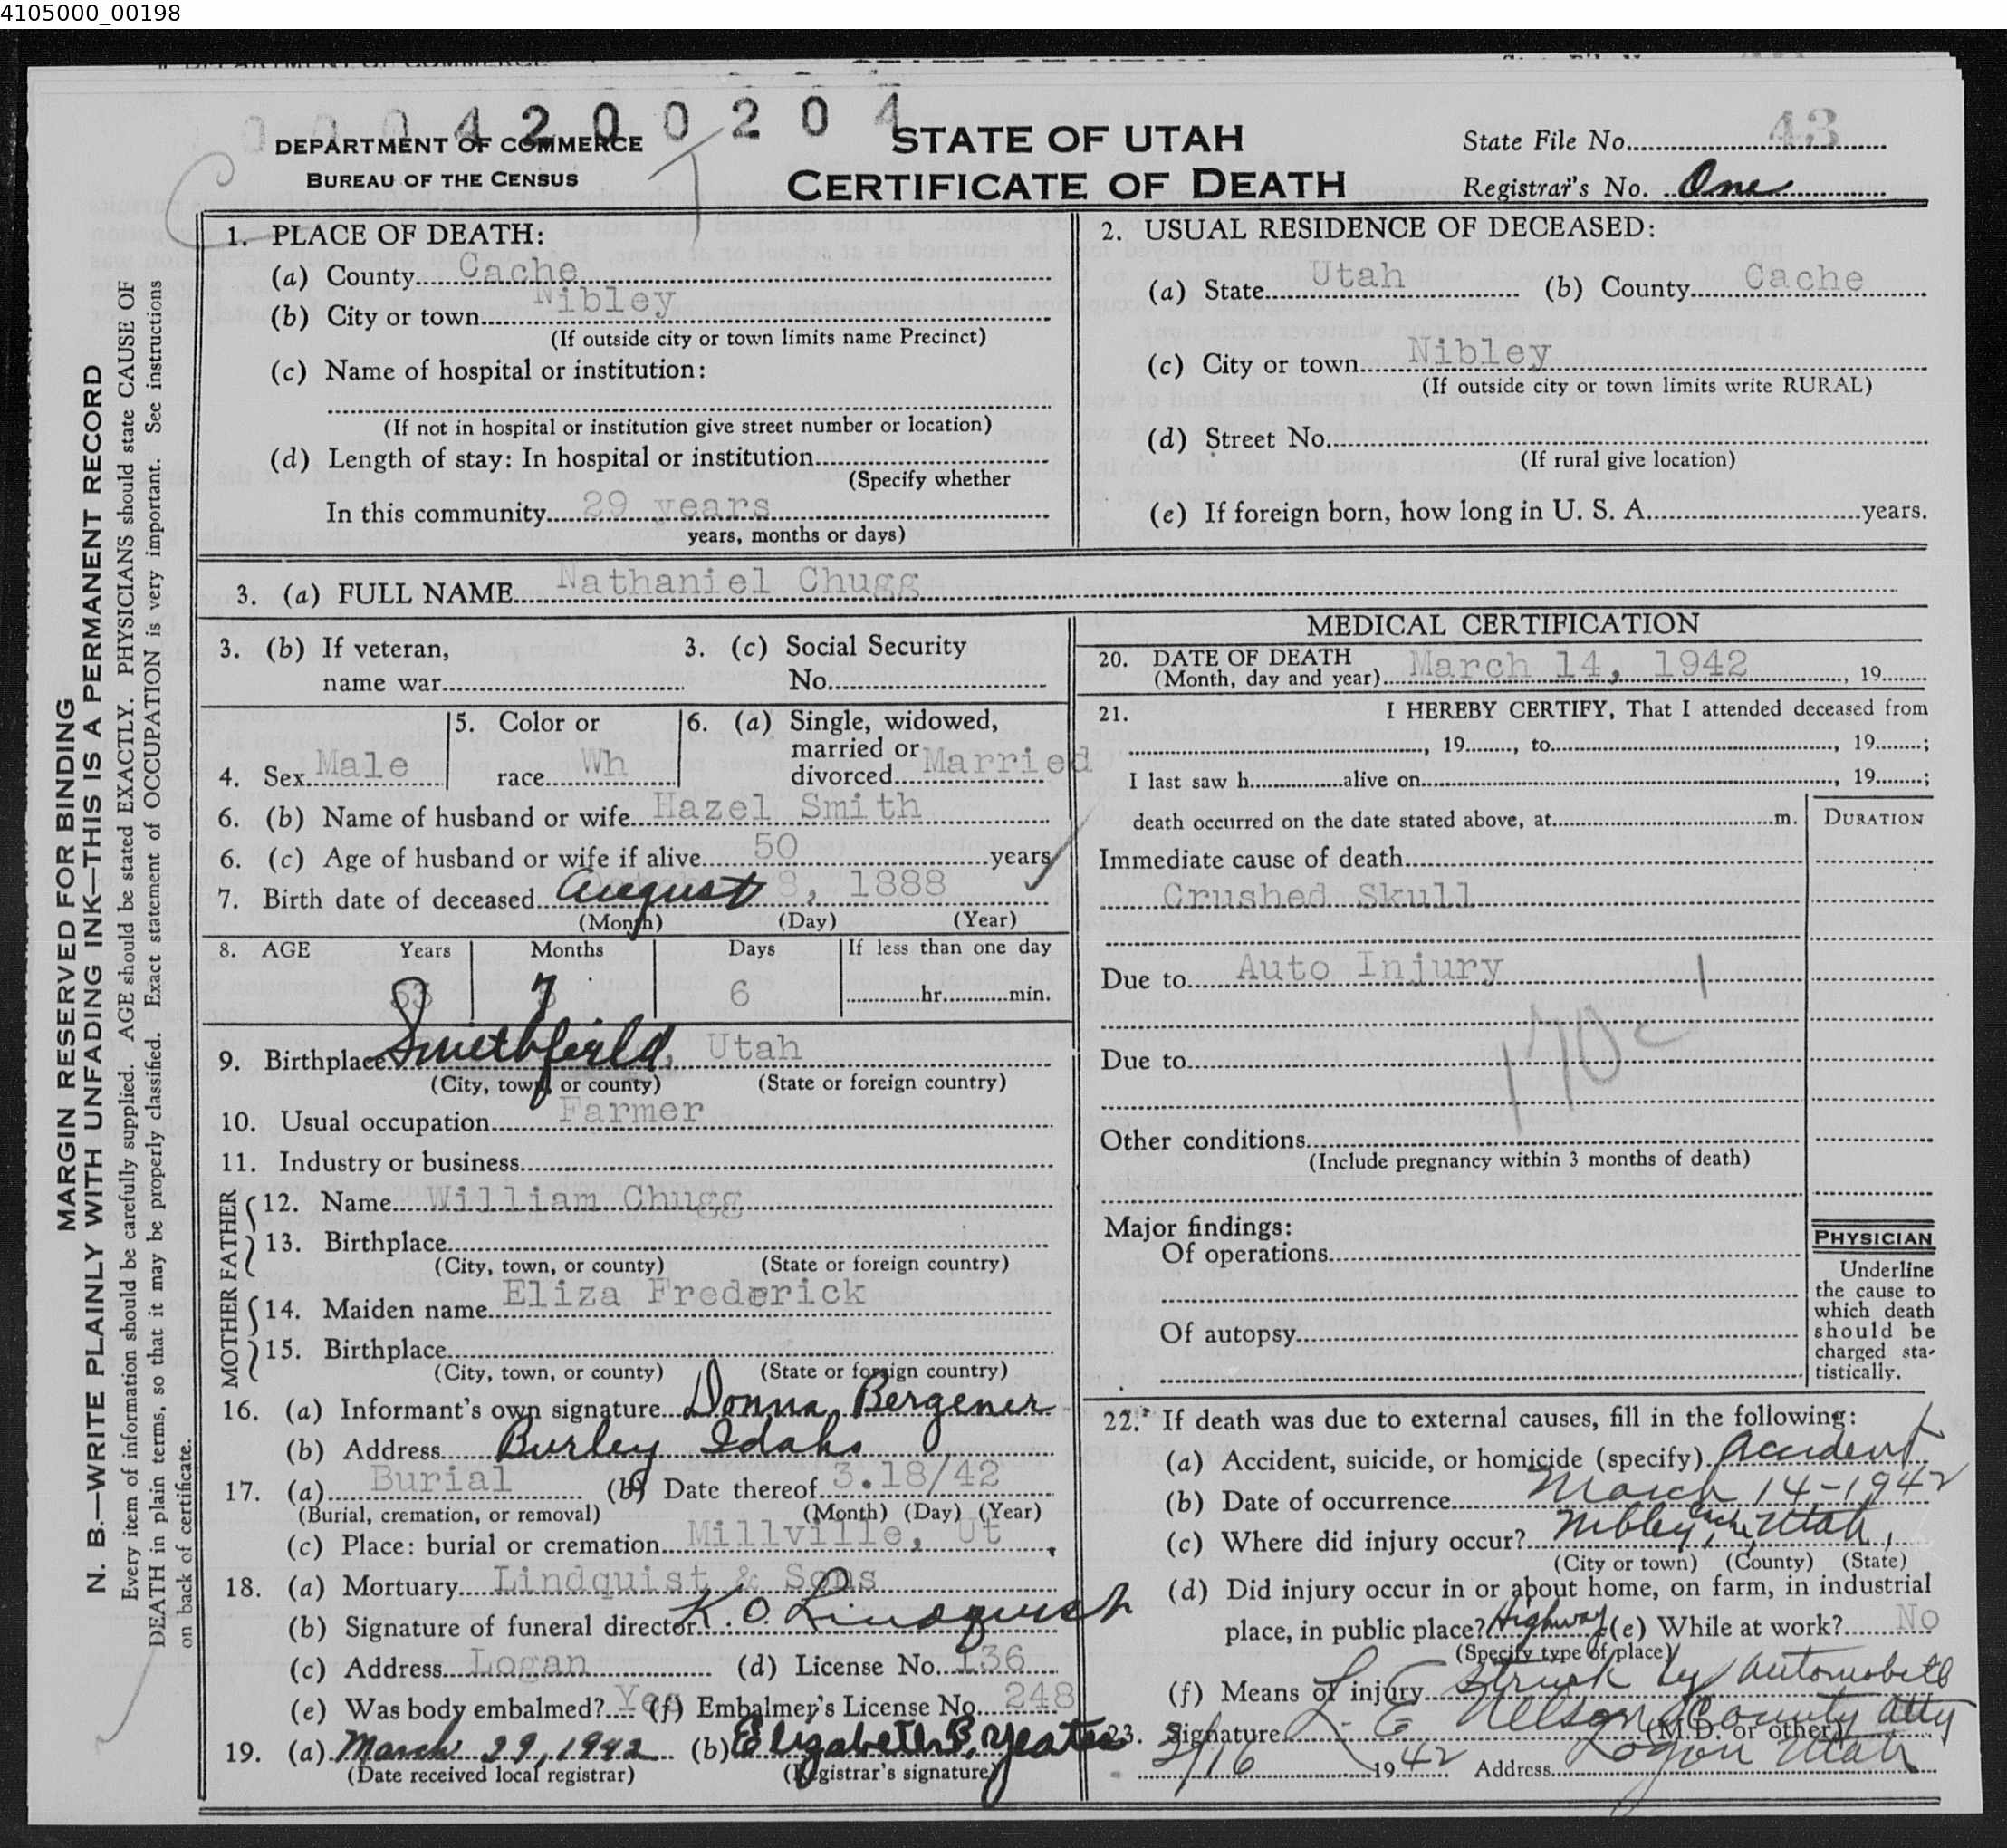 4105000_00198
0 0 0 4 2 0 0 2 0 4
DEPARTMENT OF COMMERCE
BUREAU OF THE CENSUS
STATE OF UTAH
CERTIFICATE OF DEATH
State File No. 43
Registrar's No. One
MARGIN RESERVED FOR BINDING
N. B.—WRITE PLAINLY WITH UNFADING INK—THIS IS A PERMANENT RECORD
Every item of information should be carefully supplied. AGE should be stated EXACTLY. PHYSICIANS should state CAUSE OF
DEATH in plain terms, so that it may be properly classified. Exact statement of OCCUPATION is very important. See instructions
on back of certificate.
1. PLACE OF DEATH:
(a) County Cache
(b) City or town Nibley
(If outside city or town limits name Precinct)
(c) Name of hospital or institution:
(If not in hospital or institution give street number or location)
(d) Length of stay: In hospital or institution
(Specify whether
In this community 29 years
years, months or days)
2. USUAL RESIDENCE OF DECEASED:
(a) State Utah (b) County Cache
(c) City or town Nibley
(If outside city or town limits write RURAL)
(d) Street No.
(If rural give location)
(e) If foreign born, how long in U. S. A. years.
3. (a) FULL NAME Nathaniel Chugg
3. (b) If veteran, name war
3. (c) Social Security No.
4. Sex Male
5. Color or race Wh
6. (a) Single, widowed, married or divorced Married
6. (b) Name of husband or wife Hazel Smith
6. (c) Age of husband or wife if alive 50 years
7. Birth date of deceased August 8, 1888
(Month) (Day) (Year)
8. AGE Years Months Days If less than one day
53 7 6 hr. min.
9. Birthplace Smithfield, Utah
(City, town, or county) (State or foreign country)
10. Usual occupation Farmer
11. Industry or business
FATHER
12. Name William Chugg
13. Birthplace
(City, town, or county) (State or foreign country)
MOTHER
14. Maiden name Eliza Frederick
15. Birthplace
(City, town, or county) (State or foreign country)
16. (a) Informant's own signature Donna Bergener
(b) Address Burley Idaho
17. (a) Burial (b) Date thereof 3.18/42
(Burial, cremation, or removal) (Month) (Day) (Year)
(c) Place: burial or cremation Millville, Ut
18. (a) Mortuary Lindquist & Sons
(b) Signature of funeral director K. O. Lindquist
(c) Address Logan (d) License No. 136
(e) Was body embalmed? Yes (f) Embalmer's License No. 248
19. (a) March 29, 1942 (b) Elizabeth B. Yeates
(Date received local registrar) (Registrar's signature)
MEDICAL CERTIFICATION
20. DATE OF DEATH
(Month, day and year) March 14, 1942, 19
21. I HEREBY CERTIFY, That I attended deceased from
, 19, to, 19;
I last saw h alive on, 19;
death occurred on the date stated above, at m.
DURATION
Immediate cause of death
Crushed Skull
Due to Auto Injury
170c
Due to
Other conditions
(Include pregnancy within 3 months of death)
Major findings:
Of operations
Of autopsy
PHYSICIAN
Underline
the cause to
which death
should be
charged sta-
tistically.
22. If death was due to external causes, fill in the following:
(a) Accident, suicide, or homicide (specify) Accident
(b) Date of occurrence March 14-1942
(c) Where did injury occur? Nibley, Cache, Utah
(City or town) (County) (State)
(d) Did injury occur in or about home, on farm, in industrial
place, in public place? Highway (e) While at work? No
(Specify type of place)
(f) Means of injury Struck by Automobile
23. Signature L. E. Nelson County Atty
(M.D. or other)
3/16 1942 Address Logan Utah